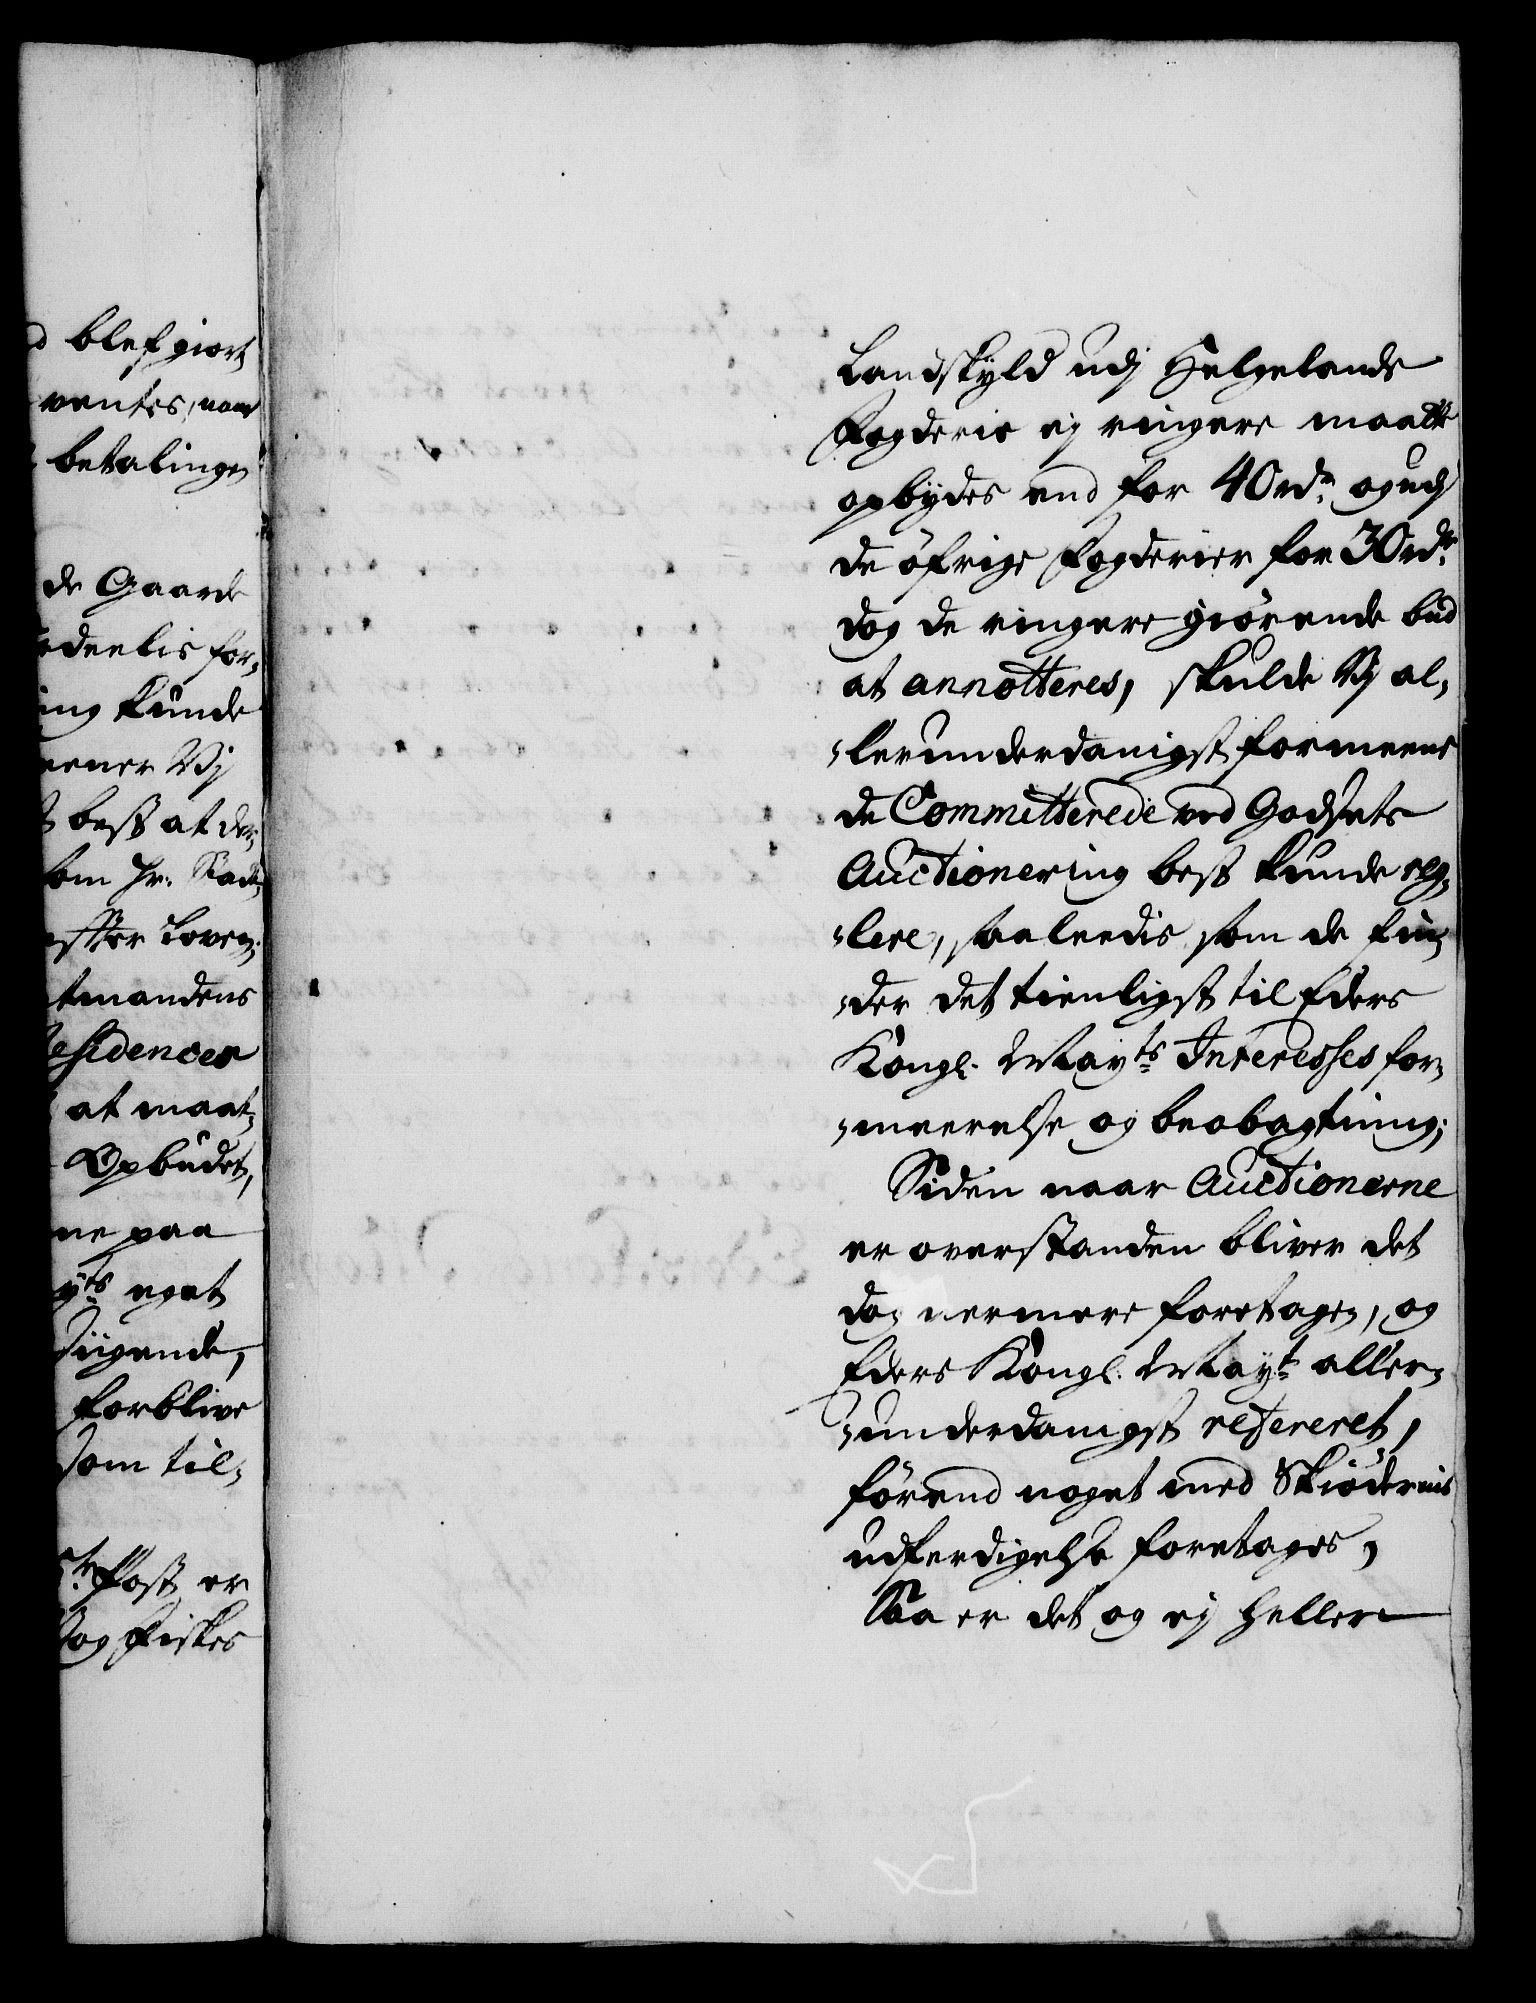 blef giort
ventes, naar
betalingen
de Gaarde
for-
kunde
meener Vj
best at der-
som Hr. Stadt-
effter
tmandens
Residencer
at maat-
Opbudet,
ne paa
yts eget
siigende,
forblive
som til-
Post er
og Fiskes
Landskyld udj Helgelands
Fogderie ej ringere maatte
opbydes end for 40 rdr og udj
de öfrige Fogderier for 30 rdr
dog de ringere giörende bud
at annotteres, skulde Vj al-
lerunderdanigst formeene
de Committerede ved Godsets
Auctionering best kunde reg-
lere, saaleedis som de fin-
der det tienligst til Eders
Kongl. Mayts Interesses for-
meerelse og beobagtning;
Siden naar Auctionerne
er overstanden bliver det
dog nermere foretagen, og
Eders Kongl. Mayt aller-
underdanigst refereret,
förend noget med Skiödernis
udferdigelse foretages,
Saa er det og ej heller